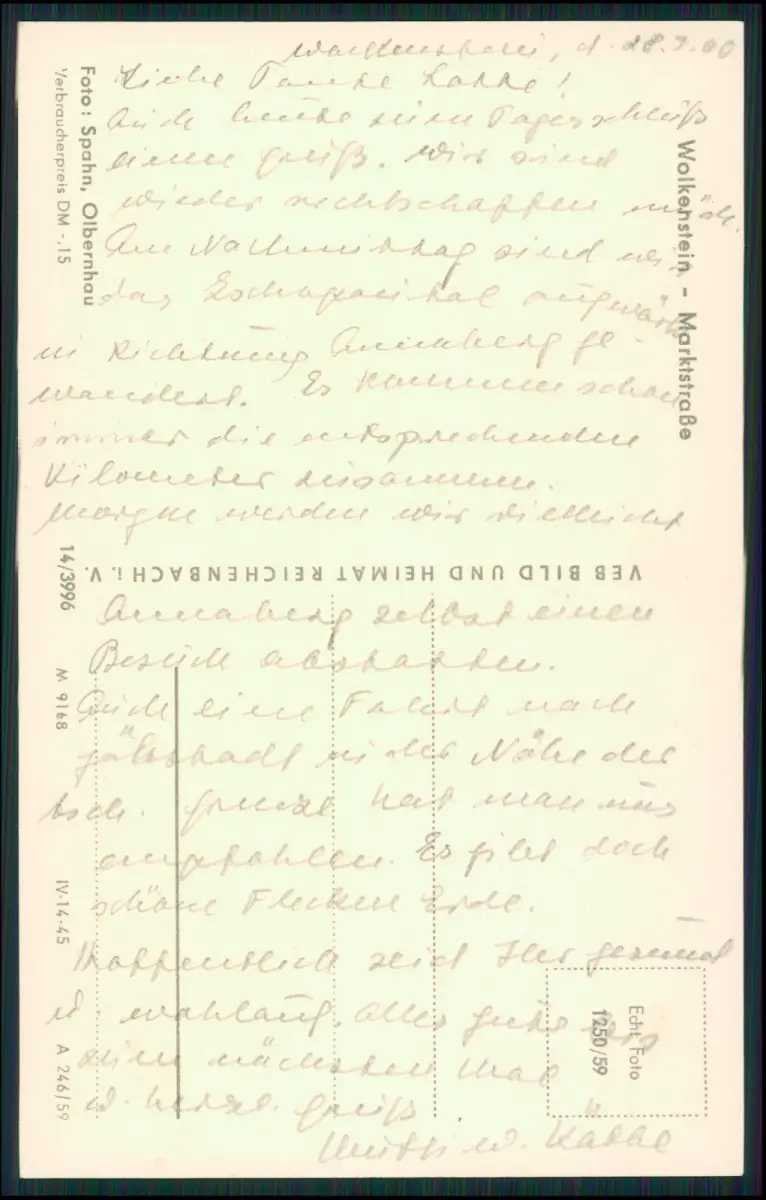 Wolkenstein, d. 28.7.60
Liebe Tante Lotte!
Auch heute zum Tagesschluß
einen Gruß. Wir sind
wieder rechtschaffen müde.
Am Nachmittag sind wir
das Zschopautal aufwärts
in Richtung Annaberg ge-
wandert. Es kommen schon
immer die entsprechenden
Kilometer zusammen.
Morgen werden wir vielleicht
Annaberg selbst einen
Besuch abstatten.
Auch eine Fahrt nach
Jöhstadt in der Nähe der
tsch. Grenze hat man uns
empfohlen. Es gibt doch
schöne Flecken Erde.
Hoffentlich seid Ihr gesund
u. wohlauf. Alles Gute bis
zum nächsten Mal
u. herzl. Grüße
Mutti u. Käthe
Wolkenstein - Marktstraße
Foto: Spahn, Olbernhau
Verbraucherpreis DM -,15
VEB BILD UND HEIMAT REICHENBACH i. V.
14/3996
M 9168
IV-14-45
A 246/59
Echt Foto
1250/59